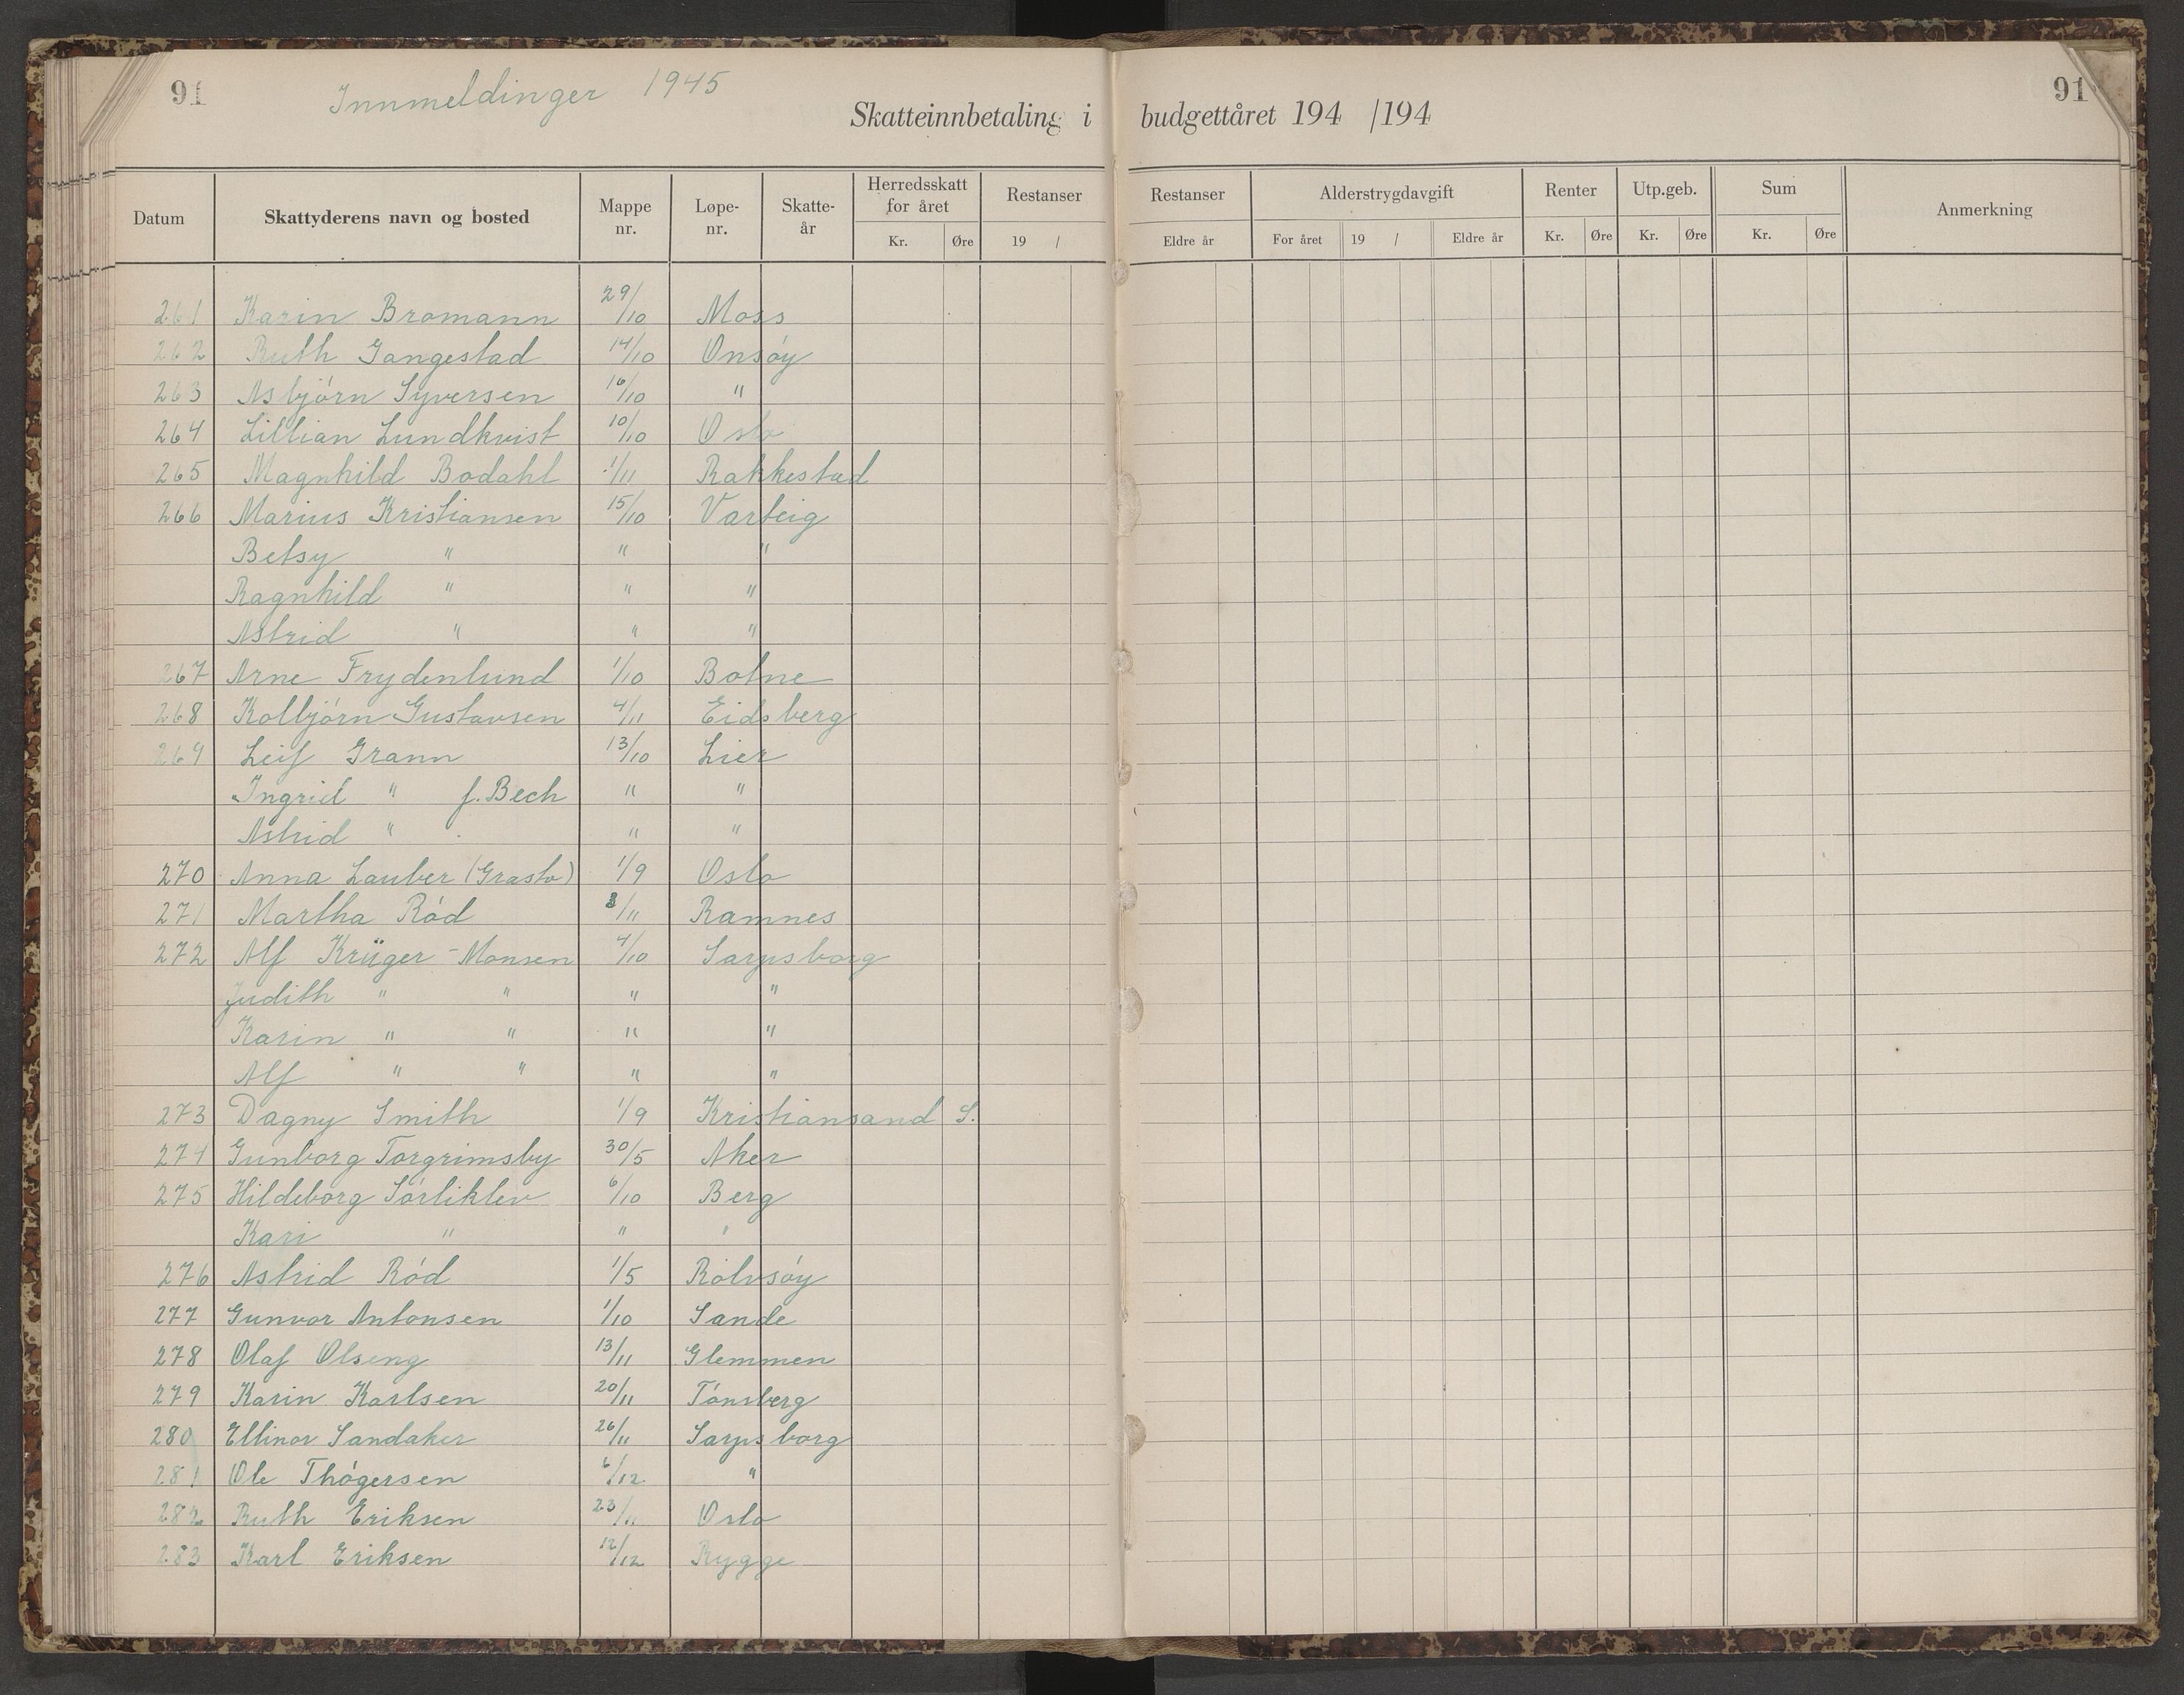 91 Innmeldinger 1945 91
Skatteinnbetaling i budgettåret 194 /194
Datum Skattyderens navn og bosted Mappe nr. Løpe- nr. Skatte- år Herredsskatt for året Restanser Restanser Alderstrygdavgift Renter Utp.geb. Sum Anmerkning
Kr. Øre 19 / Eldre år For året 19 / Eldre år Kr. Øre Kr. Øre Kr. Øre
261 Karin Bromann 29/10 Moss
262 Ruth Gangestad 14/10 Onsøy
263 Asbjörn Syversen 16/10 "
264 Lillian Lundkvist 10/10 Oslo
265 Magnhild Bodahl 1/11 Rakkestad
266 Marius Kristiansen 15/10 Varteig
Betsy " " "
Ragnhild " " "
Astrid " " "
267 Arne Frydenlund 1/10 Botne
268 Kolbjörn Gustavsen 4/11 Eidsberg
269 Leif Grann 13/10 Lier
Ingrid " f. Bech " "
Astrid " " "
270 Anna Lauber (Grasto) 1/9 Oslo
271 Martha Ród 3/11 Ramnes
272 Alf Krüger-Monsen 4/10 Sarpsborg
Judith " " " "
Karin " " " "
Alf " " " "
273 Dagny Smith 1/9 Kristiansand S.
274 Gunborg Torgrimsby 30/5 Aker
275 Hildeborg Sórliklev 6/10 Berg
Kari " " "
276 Astrid Ród 1/5 Rolvsóy
277 Gunvor Antonsen 1/10 Sande
278 Olaf Olseng 13/11 Glemmen
279 Karin Karlsen 20/11 Tónsberg
280 Ellinor Sandaker 26/11 Sarpsborg
281 Ole Thógersen 6/12. "
282 Ruth Eriksen 23/11 Oslo
283 Karl Eriksen 12/12 Rygge